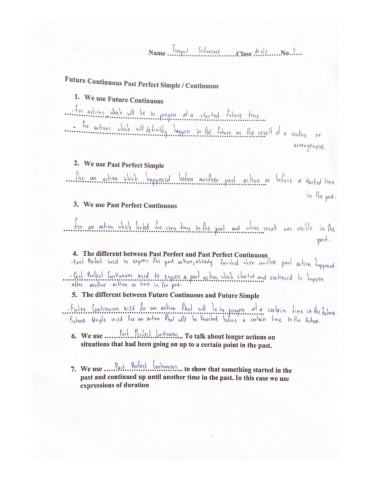 Name ............ Class ............ No. 5....
Future Continuous Past Perfect Simple / Continuous
1. We use Future Continuous
- For actions which will be in progress at a started future time
- For actions which will definitely happen in the future as the result of a routine or
arrangement.
2. We use Past Perfect Simple
For an action which happened before another past action or before a started time
in the past.
3. We use Past Perfect Continuous
For an action which lasted for some time in the past and whose result was visible in the
past.
4. The different between Past Perfect and Past Perfect Continuous
- Past Perfect used to express the past action, already finished when another past action happened.
- Past Perfect Continuous used to express a past action which started and continued to happen
after another action or time in the past.
5. The different between Future Continuous and Future Simple
- Future Continuous used for an action that will be in progress at a certain time in the future
- Future Simple used for an action that will be finished before a certain time in the future.
6. We use ......Past Perfect Continuous.... To talk about longer actions on
situations that had been going on up to a certain point in the past.
7. We use ....Past Perfect Continuous...... to show that something started in the
past and continued up until another time in the past. In this case we use
expressions of duration